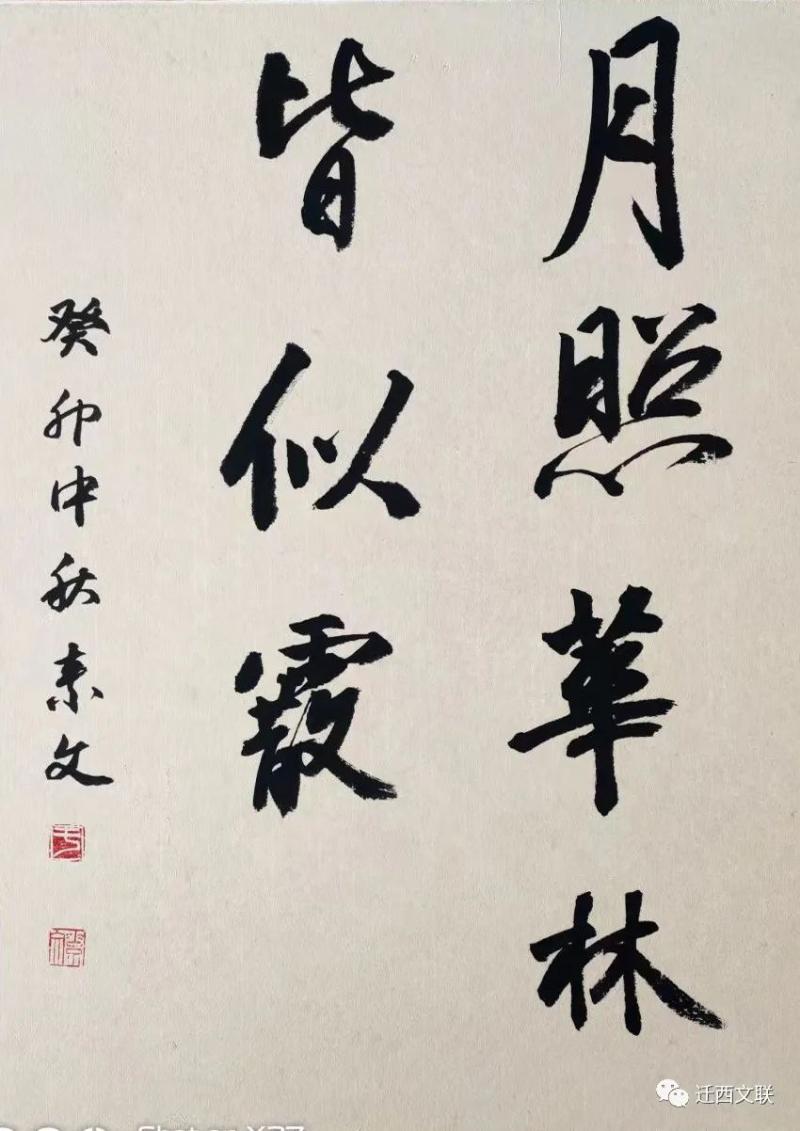 月照華林
皆似霰
癸卯中秋素文
迁西文联